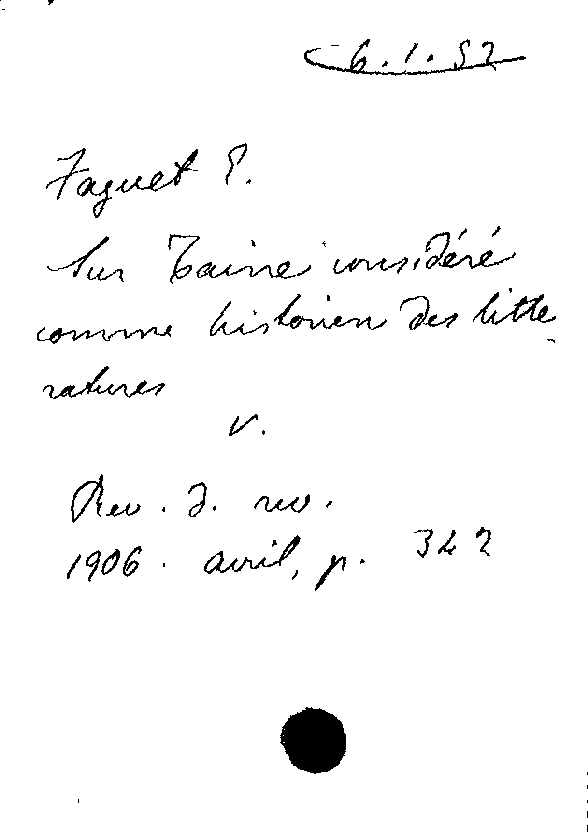 6.1.52
Faguet E.
Sur Taine considéré
comme historien des litte
ratures
v.
Rev. d. rev.
1906. avril, p. 342